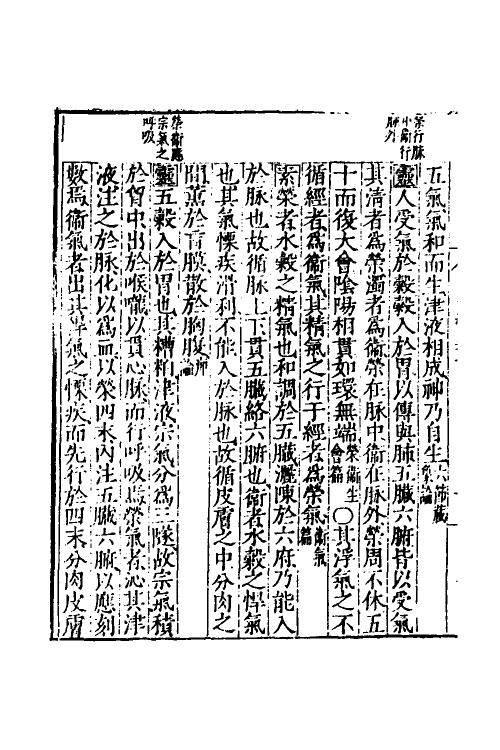 榮行脉
中衞行
脉外
五氣氣和而生津液相成神乃自生六節藏象論
靈人受氣於穀穀入於胃以傳與肺五臓六腑皆以受氣
其清者爲榮濁者爲衞榮在脉中衞在脉外榮周不休五
十而復大會陰陽相貫如環無端榮衞生會篇〇其浮氣之不
循經者爲衞氣其精氣之行于經者爲榮氣衞氣篇
素榮者水穀之精氣也和調於五臓灑陳於六府乃能入
於脉也故循脉上下貫五臓絡六腑也衞者水穀之悍氣
也其氣慄疾滑利不能入於脉也故循皮膚之中分肉之
間薫於肓膜散於胸腹痹論
榮衞應
宗氣之
呼吸
靈五穀入於胃也其糟粕津液宗氣分爲三隧故宗氣積
於胷中出於喉嚨以貫心脉而行呼吸焉榮氣者泌其津
液注之於脉化以爲血以榮四末内注五臓六腑以應刻
數焉衞氣者出其悍氣之慄疾而先行於四末分肉皮膚